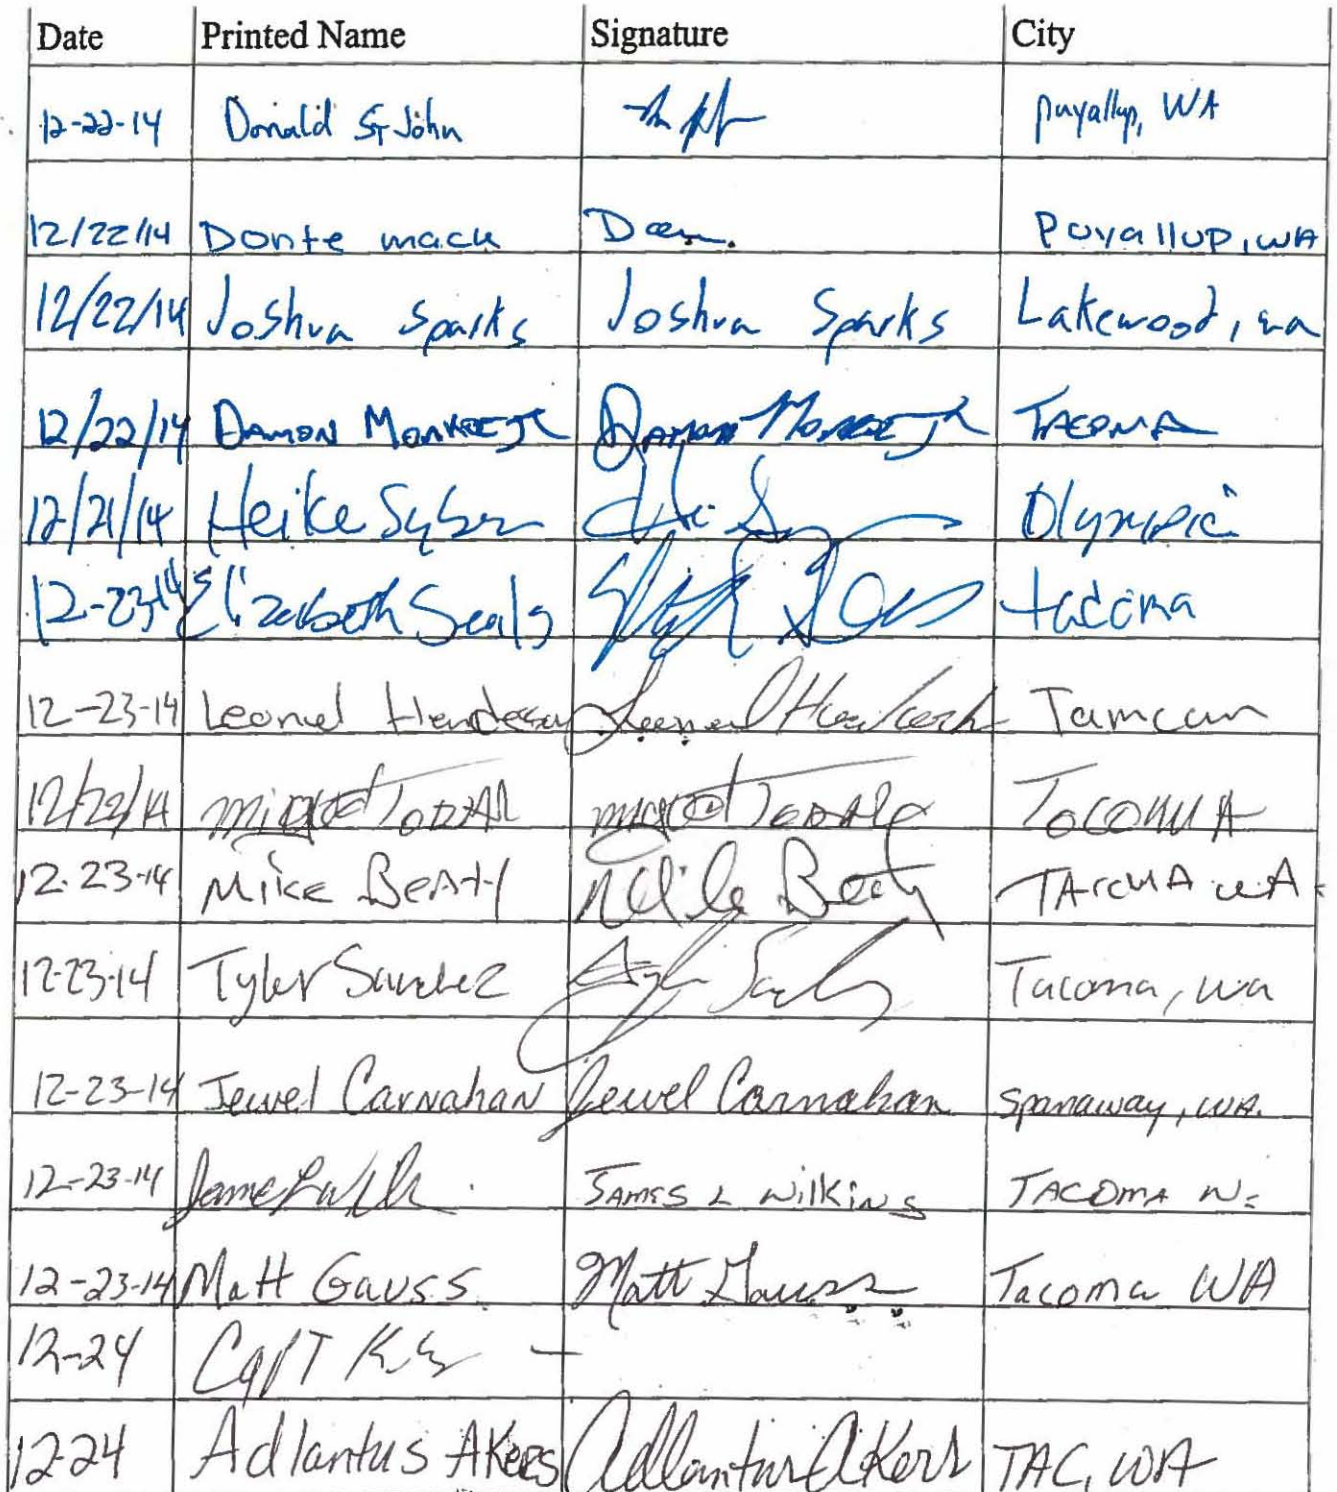 Date Printed Name Signature City
12-22-14 Donald St John puyallup, WA
12/22/14 Donte mack Puyallup, WA
12/22/14 Joshua Sparks Joshua Sparks Lakewood, wa
12/22/14 Damon Jr Damon Jr TACOMA
12/21/14 Heike Olympic
12-23-14 Elizabeth Sealy tacoma
12-23-14 Leonel
12/22/14 TORAL
12-23-14 Mike BeAty Mike Beaty
12-23-14 Tyler Sanchez Tacoma, wa
12-23-14 Jewel Carnahan Jewel Carnahan Spanaway, WA.
12-23-14 JAMES L Wilkins TACOMA
12-23-14 Matt Gauss Matt Gauss Tacoma WA
12-24 CapT
12-24 Adlantus AKers Adlantus AKers TAC, WA